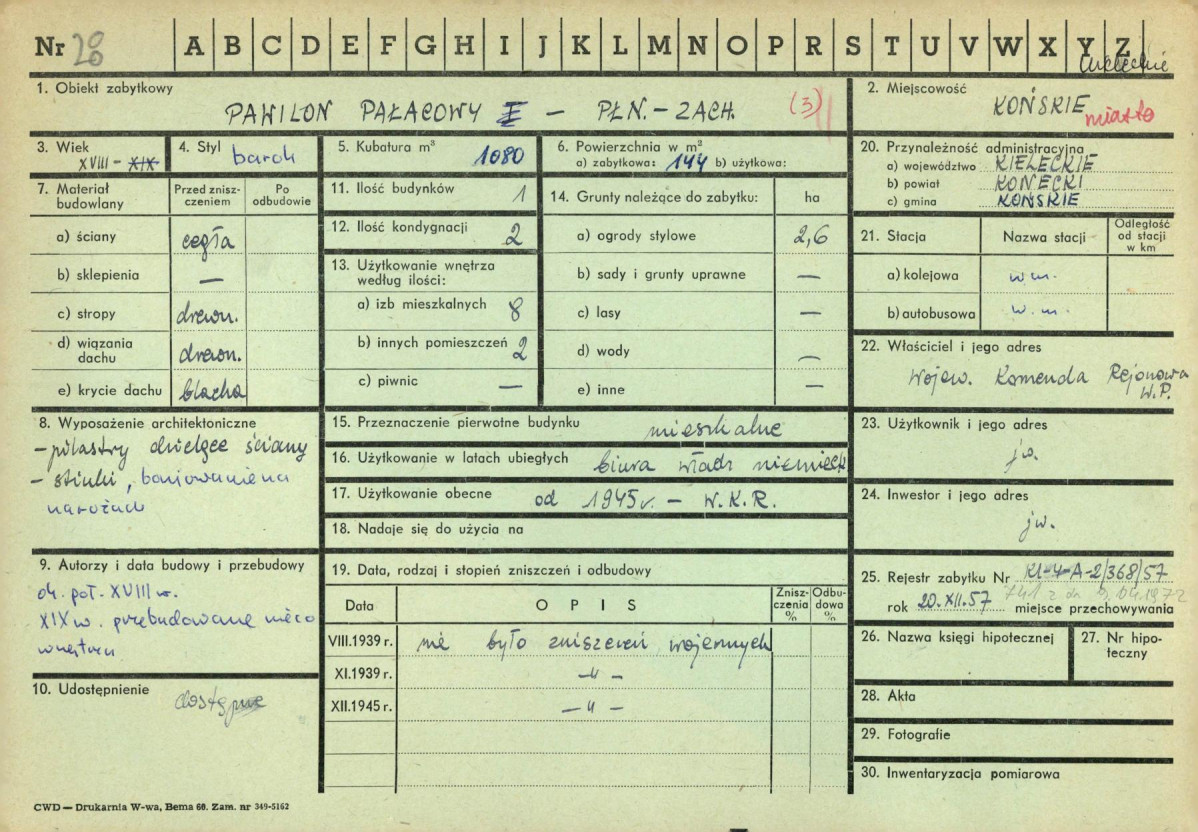 Nr 28 A B C D E F G H I J K L M N O P R S T U V W X Y Z
kieleckie
1. Obiekt zabytkowy
PAWILON PAŁACOWY I — PŁN.-ZACH. (3)
2. Miejscowość
KOŃSKIE miasto
3. Wiek
XVIII – XIX
4. Styl barok
5. Kubatura m³ 1080
6. Powierzchnia w m²
a) zabytkowa: 144 b) użytkowa:
20. Przynależność administracyjna
a) województwo KIELECKIE
b) powiat KONECKI
c) gmina KOŃSKIE
7. Materiał budowlany
Przed zniszczeniem
Po odbudowie
a) ściany cegła
b) sklepienia —
c) stropy drewn.
d) wiązania dachu drewn.
e) krycie dachu blacha
11. Ilość budynków 1
12. Ilość kondygnacji 2
13. Użytkowanie wnętrza według ilości:
a) izb mieszkalnych 8
b) innych pomieszczeń 2
c) piwnic —
14. Grunty należące do zabytku: ha
a) ogrody stylowe 2,6
b) sady i grunty uprawne —
c) lasy —
d) wody —
e) inne —
21. Stacja
Nazwa stacji
Odległość od stacji w km
a) kolejowa w m.
b) autobusowa w. m.
22. Właściciel i jego adres
Wojew. Komenda Rejonowa
W.P.
8. Wyposażenie architektoniczne
– pilastry dzielące ściany
– stiuki, boniowanie na
narożach
15. Przeznaczenie pierwotne budynku mieszkalne
16. Użytkowanie w latach ubiegłych biura władz niemieck
17. Użytkowanie obecne od 1945 r. – W.K.R.
18. Nadaje się do użycia na
23. Użytkownik i jego adres
jw.
24. Inwestor i jego adres
jw.
9. Autorzy i data budowy i przebudowy
ok. poł. XVIII w.
XIX w. przebudowane nieco
wnętrza
10. Udostępnienie dostępne
19. Data, rodzaj i stopień zniszczeń i odbudowy
Data
O P I S
Zniszczenia %
Odbudowa %
VIII.1939 r. nie było zniszczeń wojennych
XI.1939 r. –"–
XII.1945 r. –"–
25. Rejestr zabytku Nr KI-4-A-2/368/57
741 z dn 9.09.1972
rok 20.XII.57 miejsce przechowywania
26. Nazwa księgi hipotecznej
27. Nr hipoteczny
28. Akta
29. Fotografie
30. Inwentaryzacja pomiarowa
CWD — Drukarnia W-wa, Bema 60. Zam. nr 349-5162